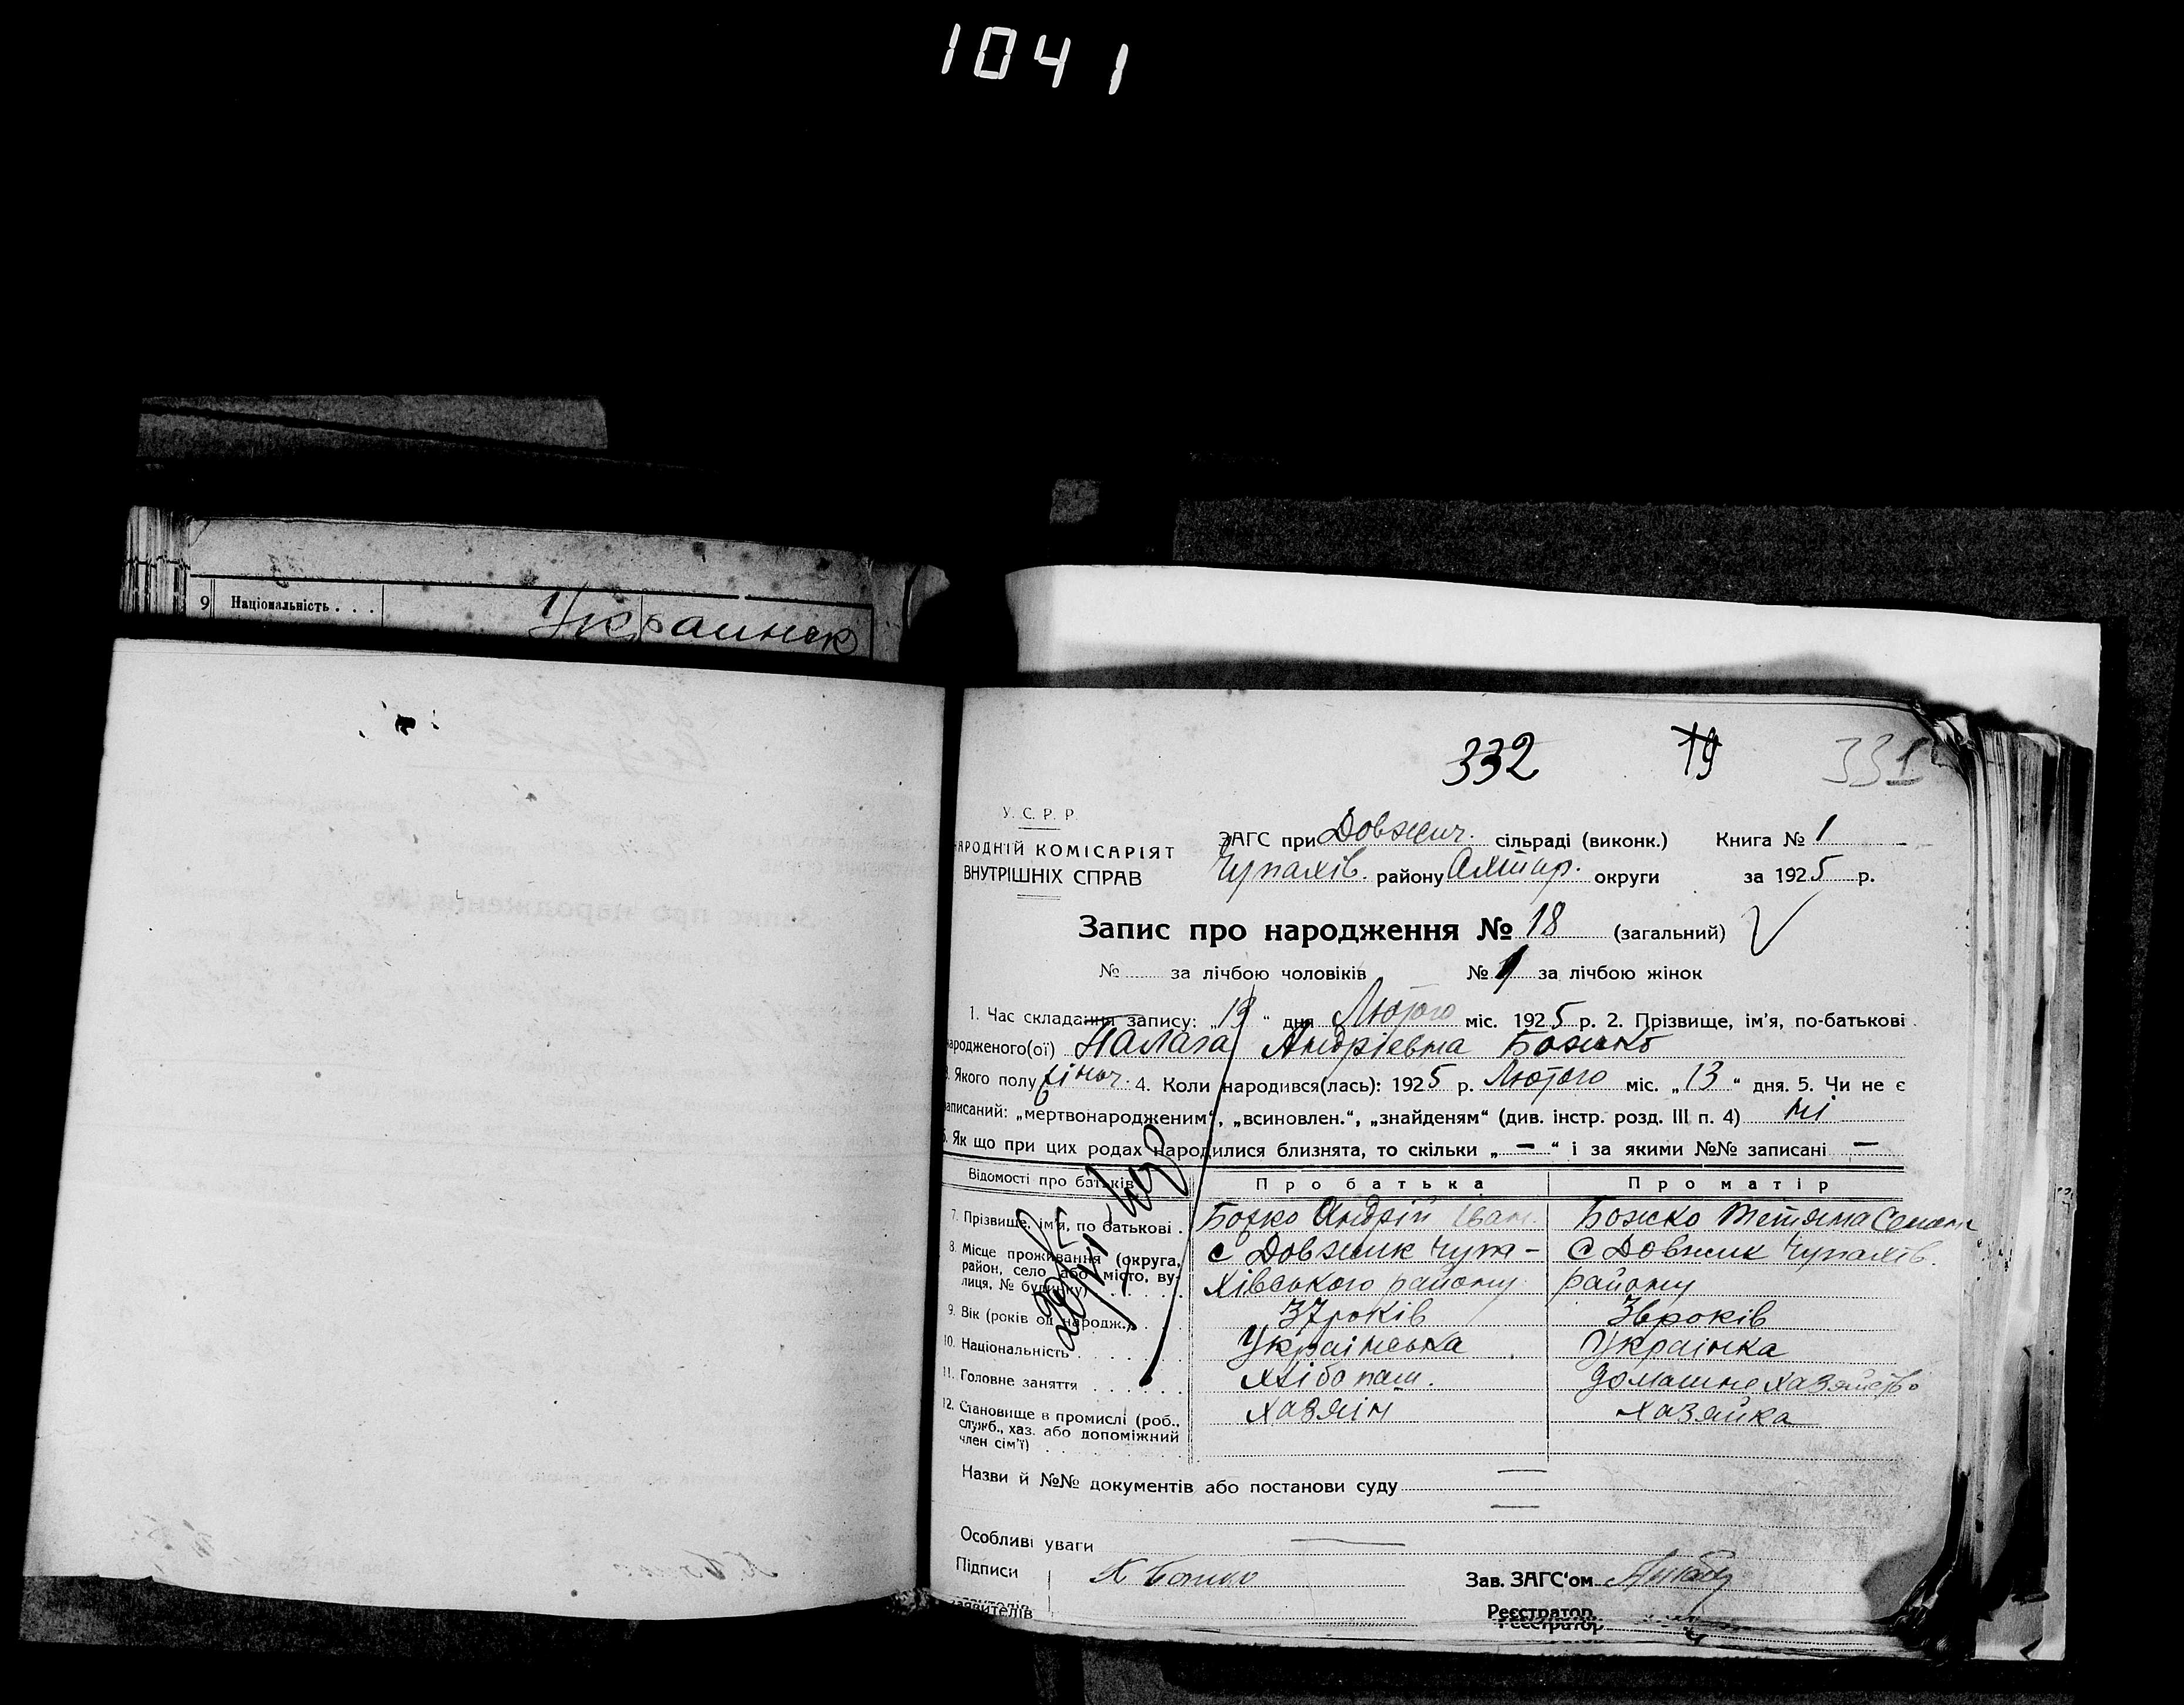 1041
9 Національність . . . Украинск
332 19 331
У. С. Р. Р.
НАРОДНІЙ КОМІСАРІЯТ
ВНУТРІШНІХ СПРАВ
ЗАГС при Довжич. сільраді (виконк.) Книга № 1
Чупахів. району Охтир. округи за 1925 р.
Запис про народження № 18 (загальний)
№ за лічбою чоловіків № за лічбою жінок
1. Час складання запису: „19“ дня Лютого міс. 1925 р. 2. Прізвище, ім'я, по-батькові
народженого(ої) Палага Андріевна Божко
3. Якого полу жіноч. 4. Коли народився(лась): 1925 р. Лютого міс. „13“ дня. 5. Чи не є
записаний: „мертвонародженим“, „всиновлен.“, „знайденям“ (див. інстр. розд. III п. 4) ні
6. Як що при цих родах народилися близнята, то скільки „ — “ і за якими №№ записані —
Відомості про батьків Про батька Про матір
7. Прізвище, ім'я, по батькові . Божко Андрій Іван. Божко Тетяна Семен
8. Місце проживання (округа, с Довжик Чупа- с Довжик Чупахів.
район, село або місто, ву-
лиця, № будинку) хівського району району
9. Вік (років од народж.) . . 37 років 36 років
10. Національність . . . . . . . Українська Українка
11. Головне заняття . . . . . . Хлібопаш. домашне хазяйство
12. Становище в промислі (роб., хазяін хазяйка
служб., хаз. або допоміжний
член сім'ї) . . . . . . .
Назви й №№ документів або постанови суду —
—
Особливі уваги —
Підписи К Божко Зав. ЗАГС'ом
заявителів Реєстратор